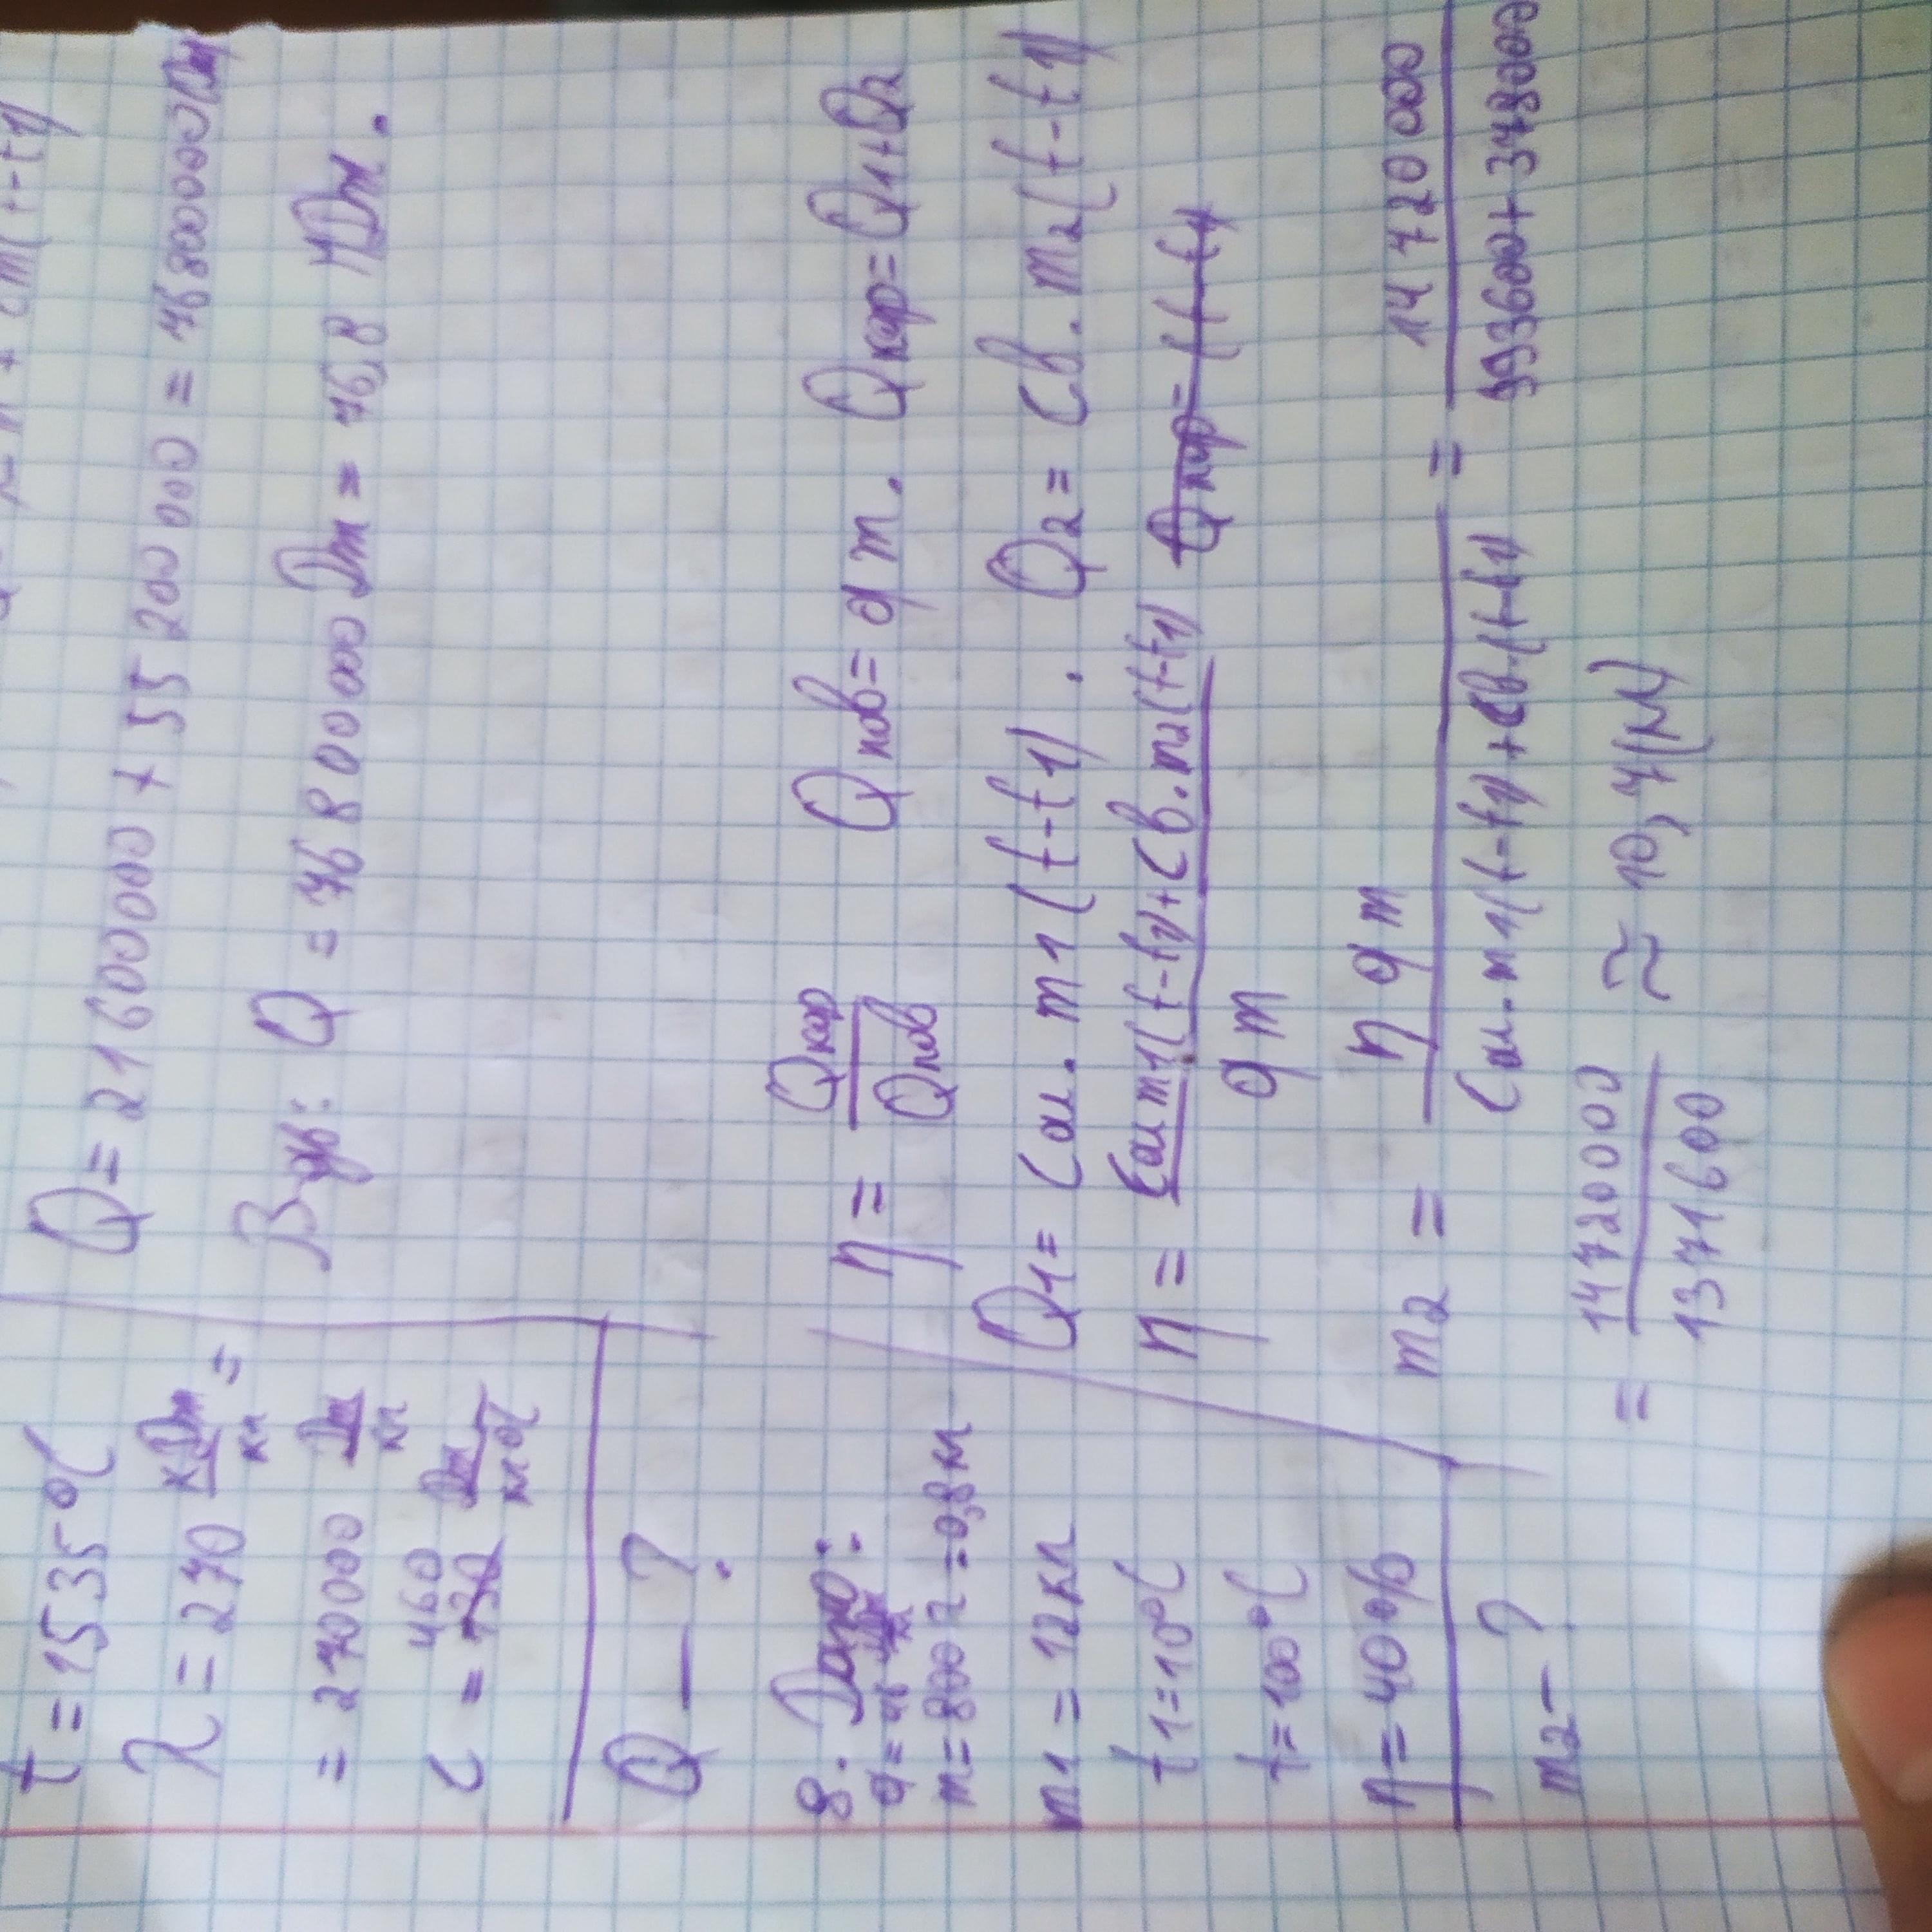 t = 1535°C
λ = 270 кДж/кг =
= 270000 Дж/кг
c = 460 Дж/кг°C
Q — ?
Q = 21600000 + 55 200 000 = 76800000 Дж
Відп: Q = 76 800 000 Дж = 76,8 МДж.
8. Дано:
m = 800 г = 0,8 кг
m1 = 12 кг
t1 = 10°C
t = 100°C
η = 40%
m2 — ?
η = Qкор/Qпов Qпов = qm. Qкор = Q1+Q2
Q1 = Cал. m1 (t-t1). Q2 = Cв. m2 (t-t1)
η = Cал m1(t-t1)+Cв.m2(t-t1)/qm
m2 = η q m/Cал.m1(t-t1)+Cв.(t-t1) = 14 720 000/993600+378000
= 14720000/1371600 ≈ 10,7(кг)